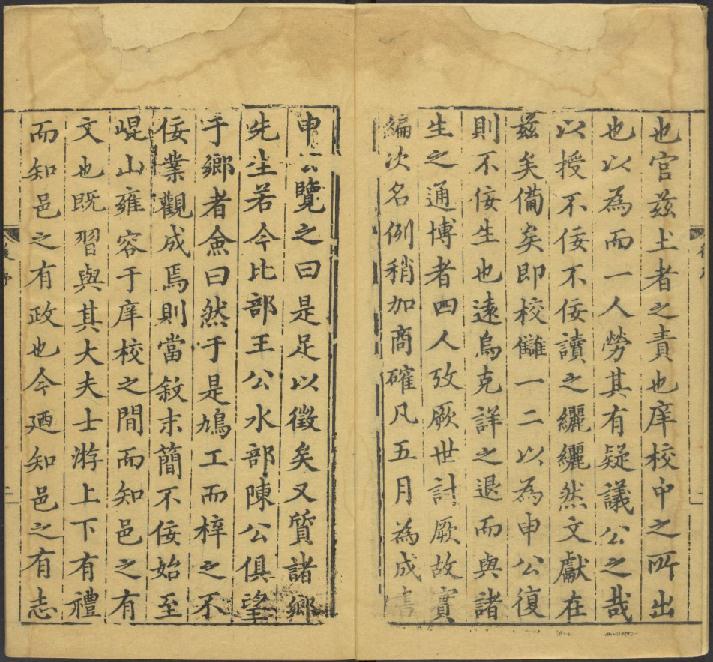 也官兹土者之責也庠校中之所出
也以為而一人勞其有疑議公之哉
以授不佞不佞讀之纚纚然文獻在
兹矣備矣即校讎一二以為申公復
則不佞生也遠烏克詳之退而與諸
生之通博者四人攷厥世討厥故實
編次名例稍加商確凡五月為成書
申公覽之曰是足以徵矣又質諸鄉
先生若今比部王公水部陳公俱望
于鄉者僉曰然于是鳩工而梓之不
佞業觀成焉則當敘末簡不佞始至
崐山雍容于庠校之間而知邑之有
文也既習與其大夫士游上下有禮
而知邑之有政也今迺知邑之有志